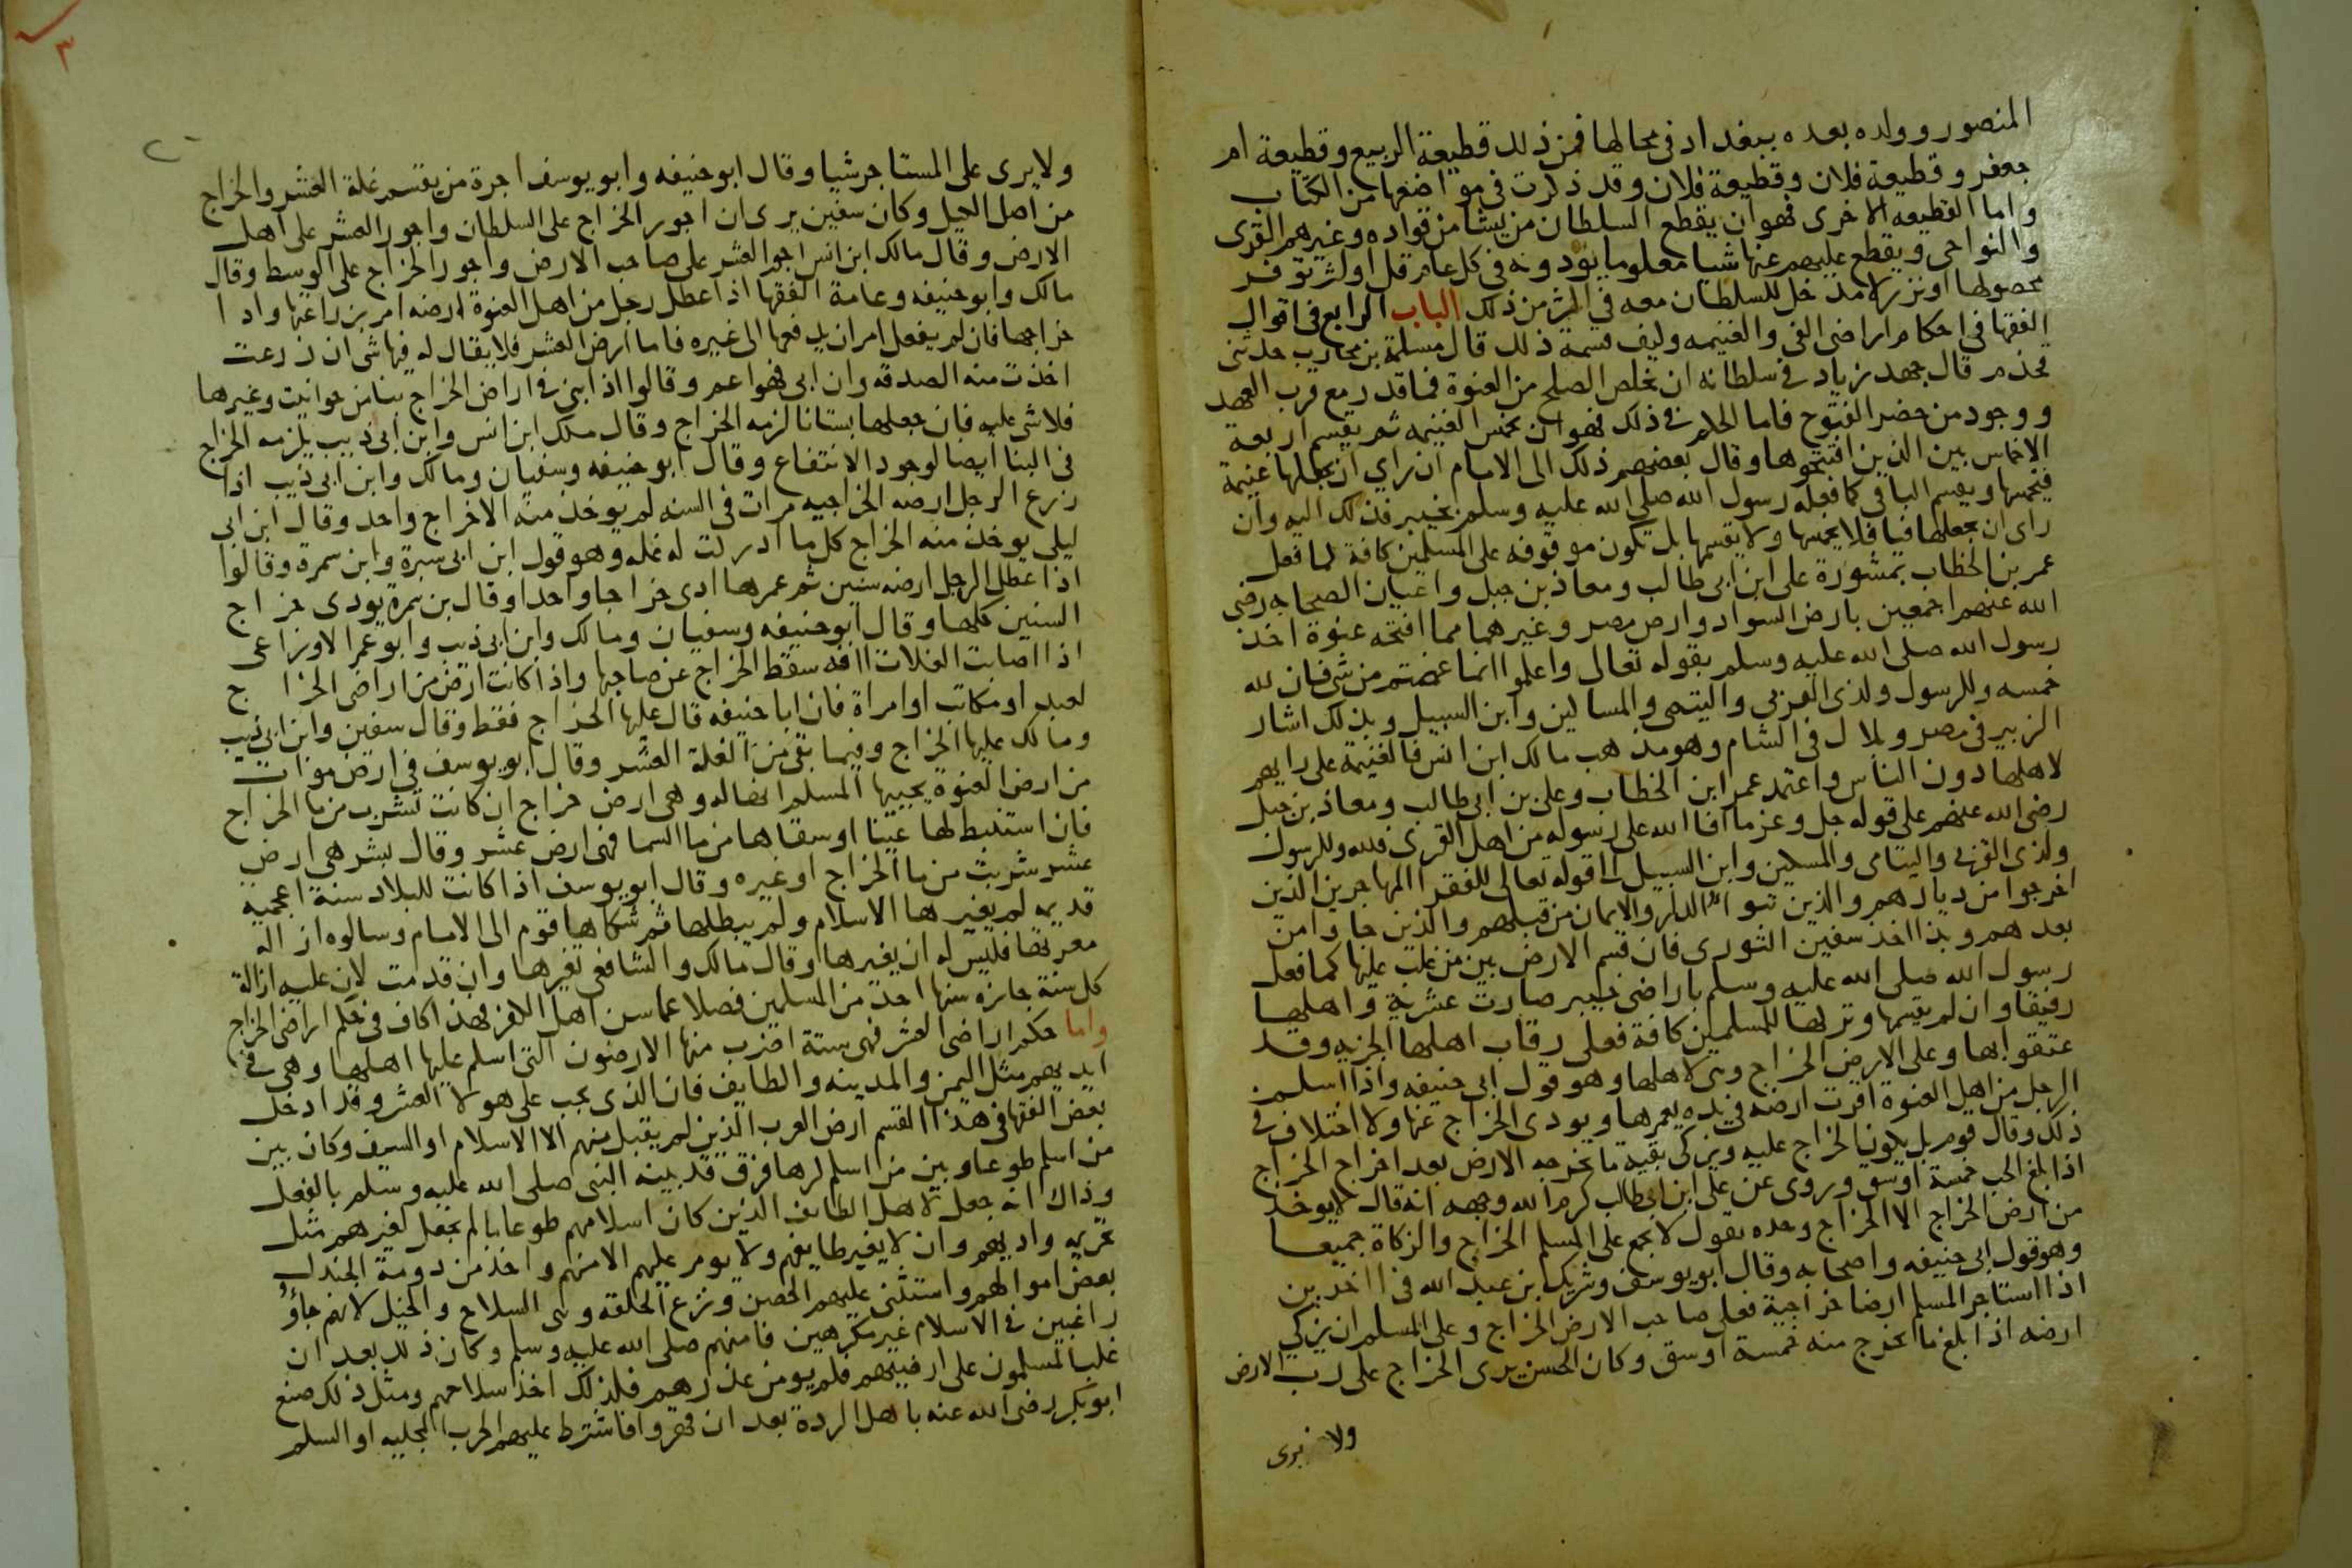 المنصور وولده بعده ببغداد في محالها فمن ذلك قطيعة الربيع وقطيعة ام
جعفر وقطيعة فلان وقطيعة فلان وقد ذكرت في مواضعها من الكتاب
واما القطيعه الاخرى فهو ان يقطع السلطان من يشا من قواده وغيرهم القرى
والنواحى ويقطع عليهم عنها شيا معلوما يودونه في كل عام قل او كثر توفر
محصولها او نزر لا مدخل للسلطان معه في اكثر من ذلك الباب الرابع في اقوال
الفقها في احكام اراضى الفى والغنيمه وكيف قسمة ذلك قال مسلمة بن محارب حدثنى
قحذم قال جهد زياد في سلطانه ان يخلص الصلح من العنوة فما قدر مع قرب العهد
ووجود من حضر الفتوح فاما الحكم في ذلك فهو ان تخمس الغنيمه ثم يقسم اربعة
الاخماس بين الذين افتتحوها وقال بعضهم ذلك الى الامام ان راي ان يجعلها غنيمة
فيخمسها ويقسم الباقى كما فعله رسول الله صلى الله عليه وسلم بخيبر فذلك اليه وان
راى ان يجعلها فيا فلا يخمسها ولا يقسمها بل تكون موقوفه على المسلمين كافة كما فعل
عمر بن الخطاب بمشورة على ابن ابى طالب ومعاذ بن جبل واعيان الصحابه رضى
الله عنهم اجمعين بارض السواد وارض مصر وغيرهما مما افتتحه عنوة اخذ
رسول الله صلى الله عليه وسلم بقوله تعالى واعلموا انما غنمتم من شى فان لله
خمسه وللرسول ولذى القربى واليتمى والمساكين وابن السبيل وبذلك اشار
الزبير في مصر وبلال في الشام وهو مذهب مالك ابن انس فالغنيمة على رايهم
لاهلها دون الناس واعتمد عمر ابن الخطاب وعلى بن ابى طالب ومعاذ بن جبل
رضى الله عنهم على قوله جل وعز ما افا الله على رسوله من اهل القرى فلله وللرسول
ولذى القربى واليتامى والمسكين وابن السبيل الى قوله تعالى للفقرا المهاجرين الذين
اخرجوا من ديارهم والذين تبوا الدار والايمان من قبلهم والذين جاوا من
بعدهم وبذا اخذ سفين الثورى فان قسم الارض بين من غلب عليها كما فعل
رسول الله صلى الله عليه وسلم باراضى خيبر صارت عشرية واهلها
رقيقا وان لم يقسمها وتركها للمسلمين كافة فعلى رقاب اهلها الجزيه وقد
عتقوا بها وعلى الارض الخراج وهى لاهلها وهو قول ابى حنيفه واذا اسلم
الرجل من اهل العنوة اقرت ارضه في يده يعمرها ويودى الخراج عنها ولا اختلاف في
ذلك وقال قوم بل يكون الخراج عليه ويزكى بقية ما تخرجه الارض بعد اخراج الخراج
اذا بلغ الحب خمسة اوسق وروى عن على ابن ابى طالب كرم الله وجهه انه قال لا يوخذ
من ارض الخراج الا الخراج وحده يقول لا يجمع على المسلم الخراج والزكاة جميعا
وهو قول ابى حنيفه واصحابه وقال ابو يوسف وشريك بن عبد الله في اخرين
اذا استاجر المسلم ارضا خراجية فعلى صاحب الارض الخراج وعلى المسلم ان يزكى
ارضه اذا بلغ ما تخرج منه خمسة اوسق وكان الحسن يرى الخراج على رب الارض
ولا يرى
ولا يرى على المستاجر شيا وقال ابو حنيفه وابو يوسف اجرة من يقسم غلة العشر والخراج
من اصل الكيل وكان سفين يرى ان اجور الخراج على السلطان واجور العشر على اهل
الارض وقال مالك ابن انس اجور العشر على صاحب الارض واجور الخراج على الوسط وقال
مالك وابو حنيفه وعامة الفقها اذا عطل رجل من اهل العنوة ارضه امر بزراعتها وادا
خراجها فان لم يفعل امر ان يدفعها الى غيره فاما ارض العشر فلا يقال له فيها شى ان زرعت
اخذت منه الصدقه وان ابى فهو اعم وقالوا اذا ابنى في اراض الخراج بنا من حوانيت وغيرها
فلا شى عليه فان جعلها بستانا لزمه الخراج وقال ملك ابن انس وابن ابى ذيب يلزمه الخراج
في البنا ايضا لوجود الانتفاع وقال ابو حنيفه وسفيان ومالك وابن ابى ذيب اذا
زرع الرجل ارضه الخراجيه مرات في السنه لم يوخذ منه الا خراج واحد وقال ابن ابى
ليلى يوخذ منه الخراج كل ما ادركت له غله وهو قول ابن ابى سبرة وابن سمرة وقالوا
اذا عطل الرجل ارضه سنين ثم عمرها ادى خراجا واحدا وقال بن سمرة يودى خراج
السنين كلها وقال ابو حنيفه وسفيان ومالك وابن ابى ذيب وابو عمر الاوزاعى
اذا اصابت الغلات افه سقط الخراج عن صاحبها واذا كانت ارض من اراضى الخراج
لعبد او مكاتب او امراة فان ابا حنيفه قال عليها الخراج فقط وقال سفين وابن ابى ذيب
ومالك عليها الخراج وفيما بقى من الغلة العشر وقال ابو يوسف في ارض موات
من ارض العنوة يحييها المسلم انها له وهى ارض خراج ان كانت تشرب من ما الخراج
فان استنبط لها عينا او سقاها من ما السما فهى ارض عشر وقال بشر هى ارض
عشر شربت من ما الخراج او غيره وقال ابو يوسف اذا كانت للبلاد سنة اعجميه
قديمه لم يغيرها الاسلام ولم يبطلها ثم شكاها قوم الى الامام وسالوه ازاله
معرتها فليس له ان يغيرها وقال مالك والشافعى تغيرها وان قدمت لان عليه ازالة
كل سنة جايزه سنها احد من المسلمين فضلا عما سن اهل الكفر فهذا كاف في حكم اراضى الخراج
واما حكم اراضى العشر فهى ستة اضرب منها الارضون التى اسلم عليها اهلها وهى في
ايديهم مثل اليمن والمدينه والطايف فان الذى يجب على هولا العشر وقد ادخل
بعض الفقها في هذا القسم ارض العرب الذين لم يقبل منهم الا الاسلام او السيف وكان بين
من اسلم طوعا وبين من اسلم كرها فرق قد بينه النبى صلى الله عليه وسلم بالفعل
وذاك انه جعل لاهل الطايف الذين كان اسلامهم طوعا ما لم يجعل لغيرهم مثل
تحريم واديهم وان لا يغير طايفهم ولا يومر عليهم الا منهم واخذ من دومة الجندل
بعض اموالهم واستثنى عليهم الحصن ونزع الحلقه وهى السلاح والخيل لانهم جاؤ
راغبين في الاسلام غير مكرهين فامنهم صلى الله عليه وسلم وكان ذلك بعد ان
غلب المسلمون على ارضيهم فلم يومن غدرهم فلذلك اخذ سلاحهم ومثل ذلك صنع
ابو بكر رضى الله عنه باهل الردة بعد ان قهروا فاشترط عليهم الحرب المجليه او السلم